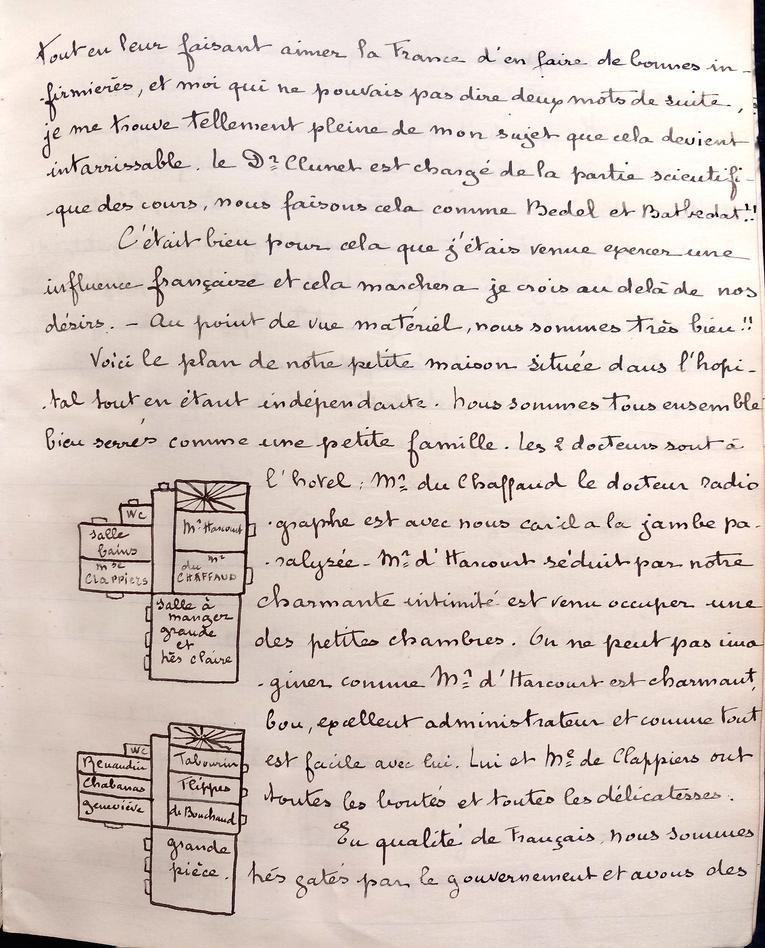 tout en leur faisant aimer la France d'en faire de bonnes in-
-firmières, et moi qui ne pouvais pas dire deux mots de suite,
je me trouve tellement pleine de mon sujet que cela devient
intarrissable. Le Dr Clunet est chargé de la partie scientifi-
-que des cours, nous faisons cela comme Bedel et Batbedat!!
C'était bien pour cela que j'étais venue exercer une
influence française et cela marchera je crois au delà de nos
désirs. - Au point de vue matériel, nous sommes très bien!!
Voici le plan de notre petite maison située dans l'hopi-
-tal tout en étant indépendante. Nous sommes tous ensemble
bien serrés comme une petite famille. Les 2 docteurs sont à
l'hotel; Mr du Chaffaud le docteur radio
-graphe est avec nous car il a la jambe pa-
-ralysée - Mr d'Harcourt séduit par notre
charmante intimité est venu occuper une
des petites chambres. On ne peut pas ima
-giner comme Mr d'Harcourt est charmant,
bon, excellent administrateur et comme tout
est facile avec lui. Lui et Me de Clappiers ont
toutes les bontés et toutes les délicatesses.
En qualité de Français, nous sommes
très gatés par le gouvernement et avons des
WC
Mr Harcourt
salle
bains
Mme
CLAPPIERS
Mr
du
CHAFFAUD
salle à
manger
grande
et
très claire
WC
Renaudin
Chabanas
Geneviève
Tabourin
Flippes
de Bouchaud
grande
pièce.